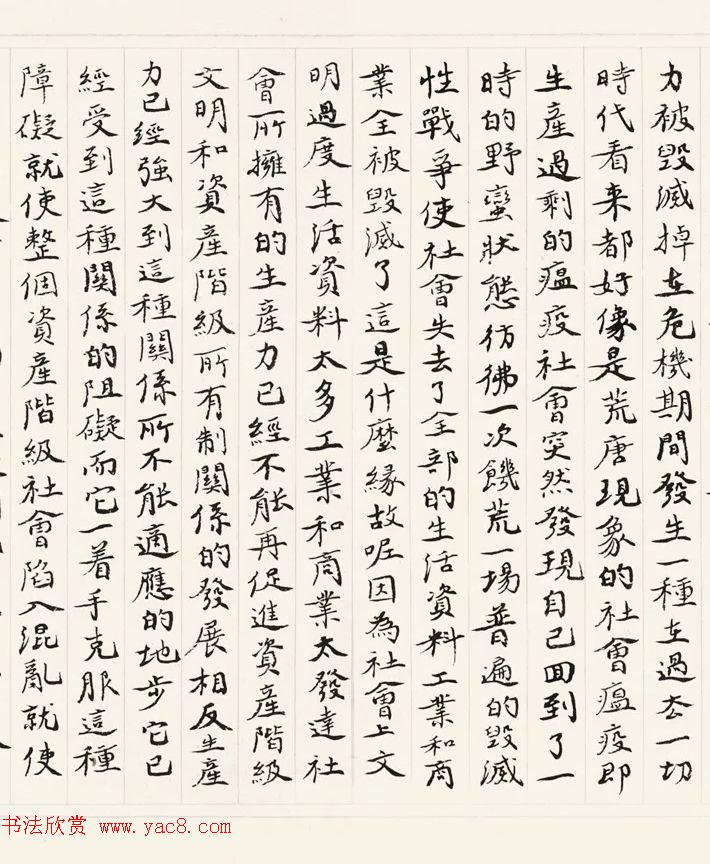 力被毀滅掉在危機期間發生一種在過去一切
時代看来都好像是荒唐現象的社會瘟疫即
生產過剩的瘟疫社會突然發現自己回到了一
時的野蠻狀態彷彿一次饑荒一場普遍的毀滅
性戰爭使社會失去了全部的生活資料工業和商
業全被毀滅了這是什麼緣故呢因為社會上文
明過度生活資料太多工業和商業太發達社
會所擁有的生產力已經不能再促進資產階級
文明和資產階級所有制關係的發展相反生產
力已經強大到這種關係所不能適應的地步它已
經受到這種關係的阻礙而它一着手克服這種
障礙就使整個資產階級社會陷入混亂就使
书法欣赏 www.yac8.com